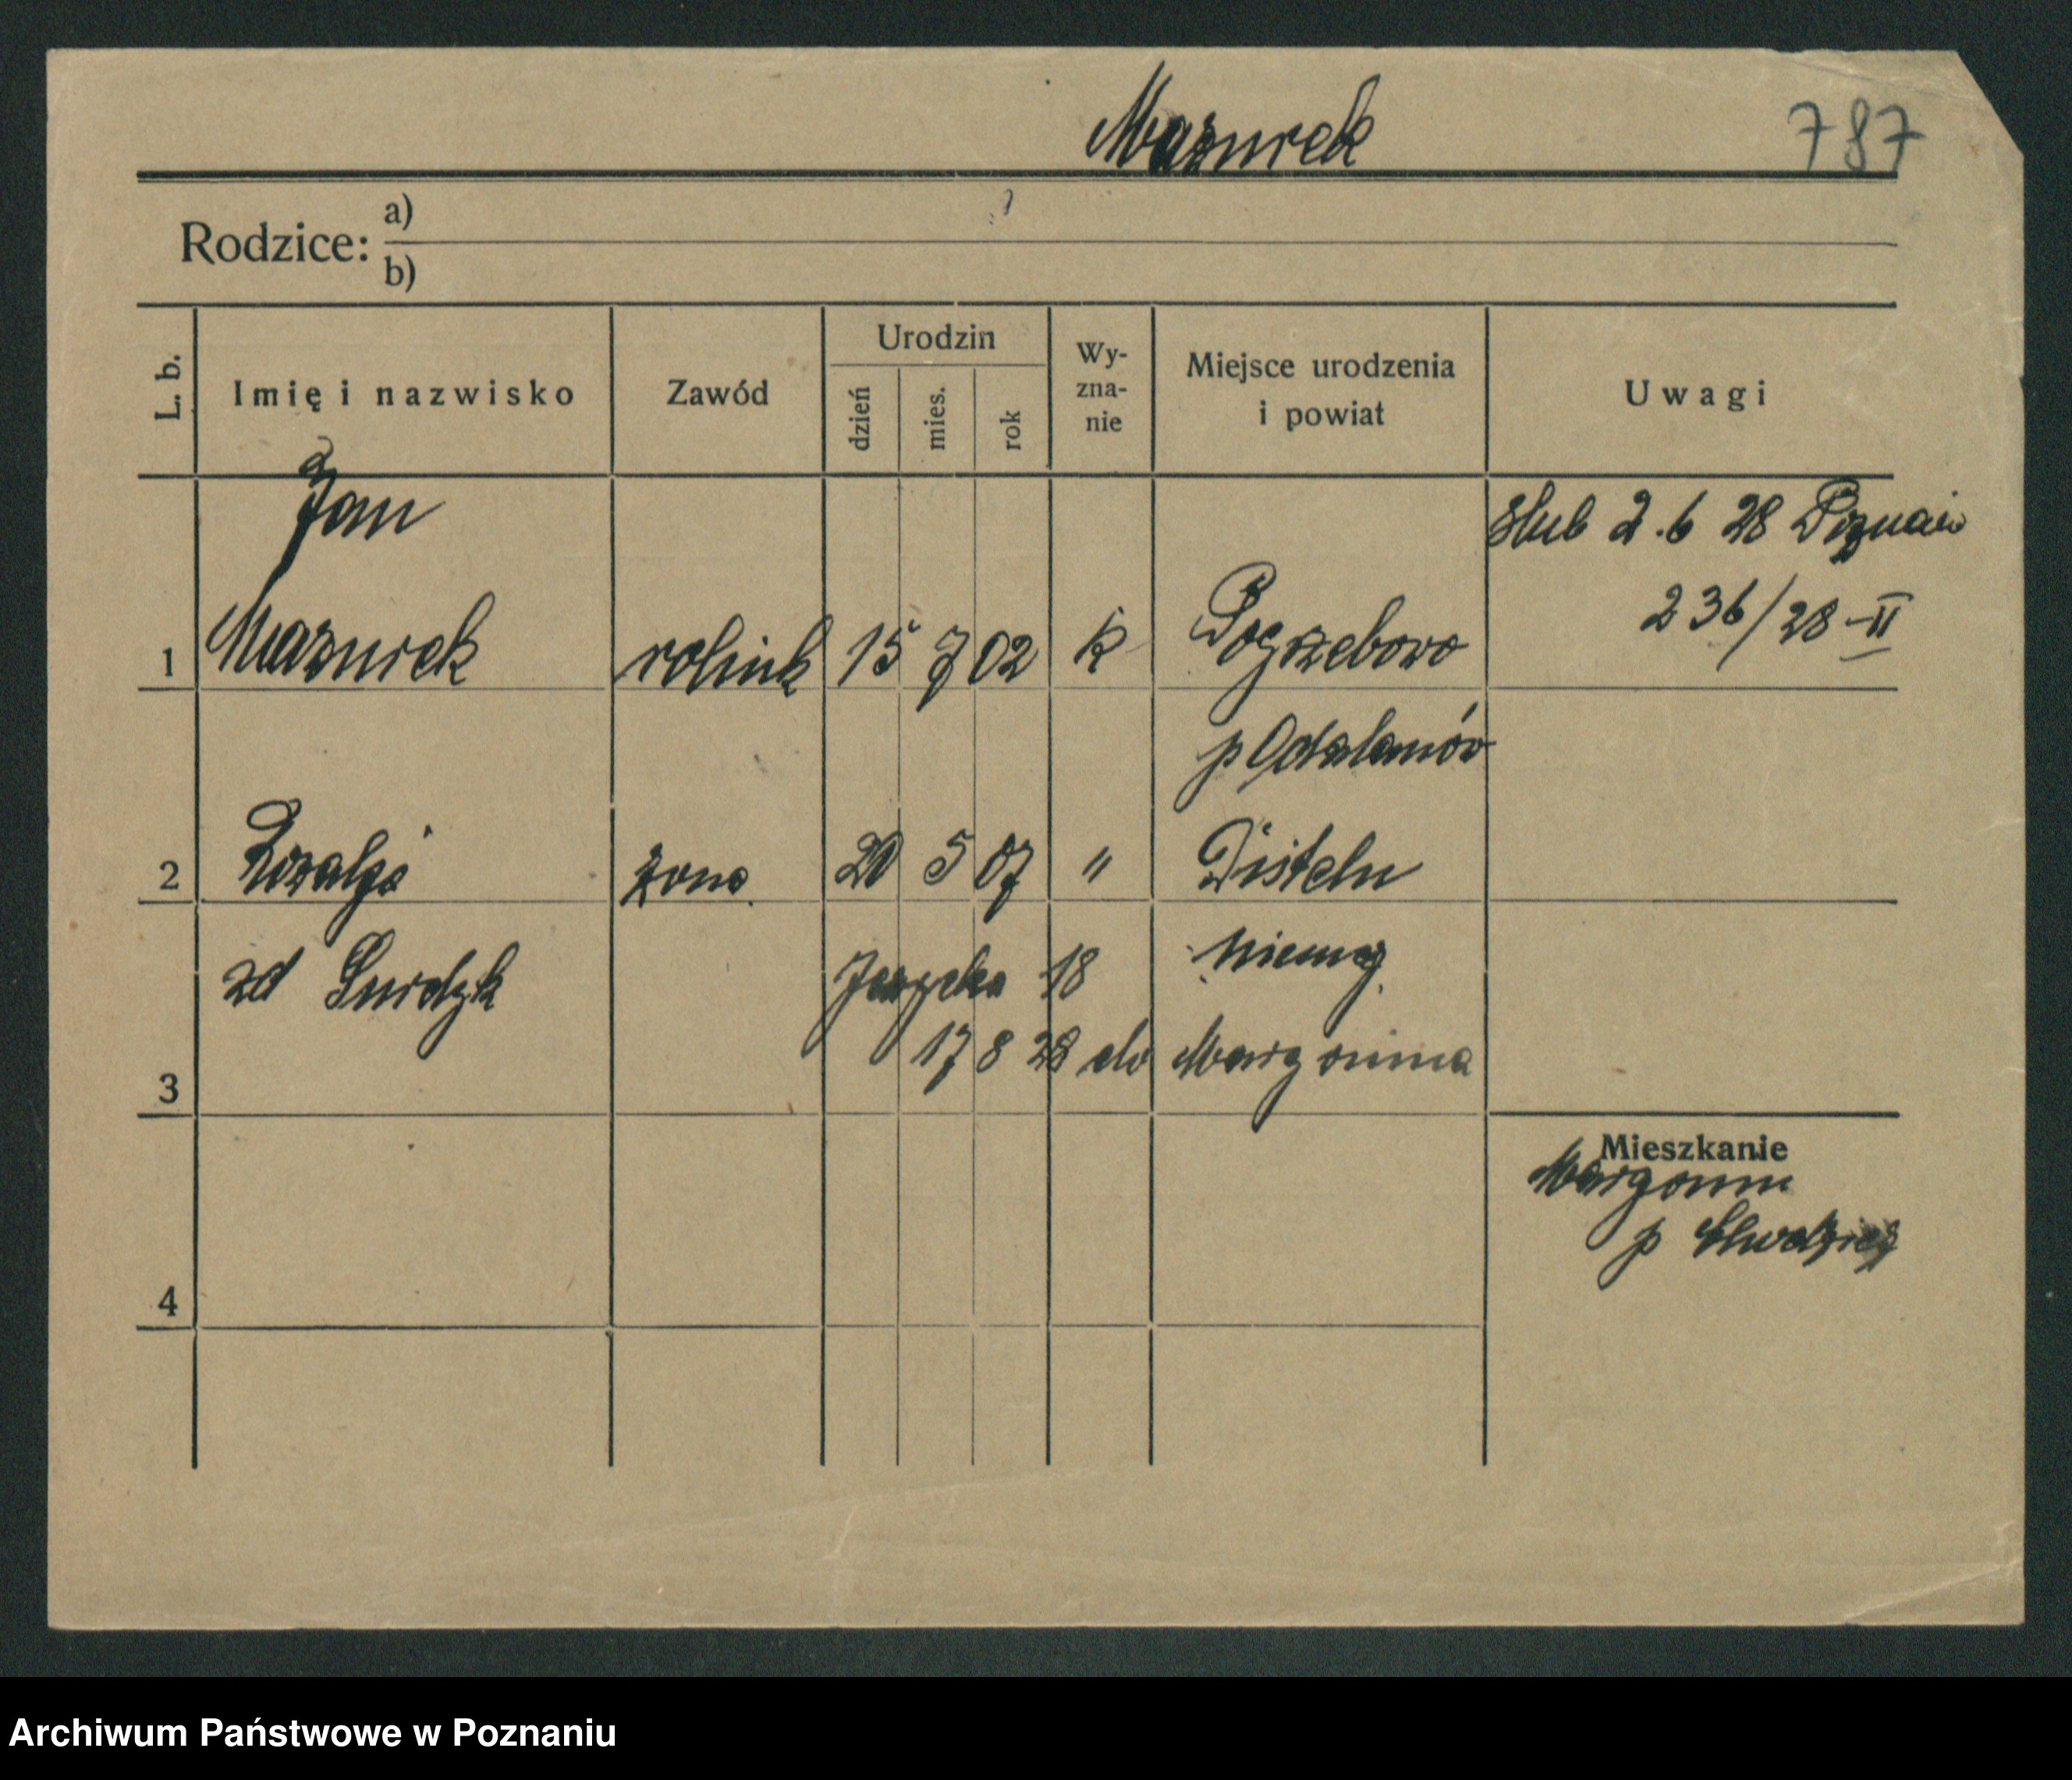 Mazurek 787
Rodzice: a)
b)
L. b. Imię i nazwisko Zawód Urodzin dzień mies. rok Wy-zna-nie Miejsce urodzenia i powiat Uwagi
Jan ślub 2.6 28 Poznań
236/28-II
1 Mazurek rolnik 15 7 02 k Pogrzebowo
p Odolanów
2 Rozalja żona 20 5 07 " Disteln
zd Surdyk Jeżycka 18 Niemcy
17 8 28 do Margonina
3
Mieszkanie
Margonin
p Chodzież
4
Archiwum Państwowe w Poznaniu